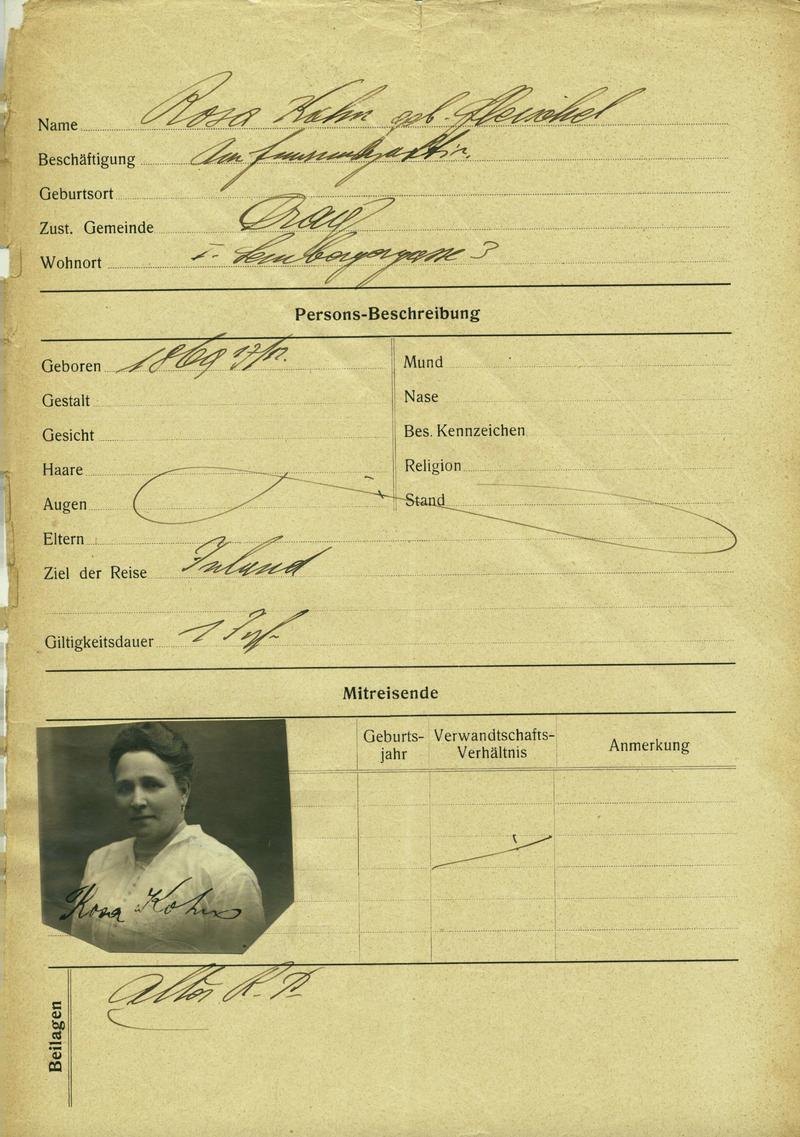 Name Rosa Kohn geb. Fleischel
Beschäftigung
Geburtsort
Zust. Gemeinde Prag
Wohnort I. Lembergergasse 3
Persons-Beschreibung
Geboren 1869
Mund
Gestalt
Nase
Gesicht
Bes. Kennzeichen
Haare
Religion
Augen
Stand
Eltern
Ziel der Reise Inland
Giltigkeitsdauer 1
Mitreisende
Geburts-
jahr
Verwandtschafts-
Verhältnis
Anmerkung
Rosa Kohn
Beilagen
R. P.